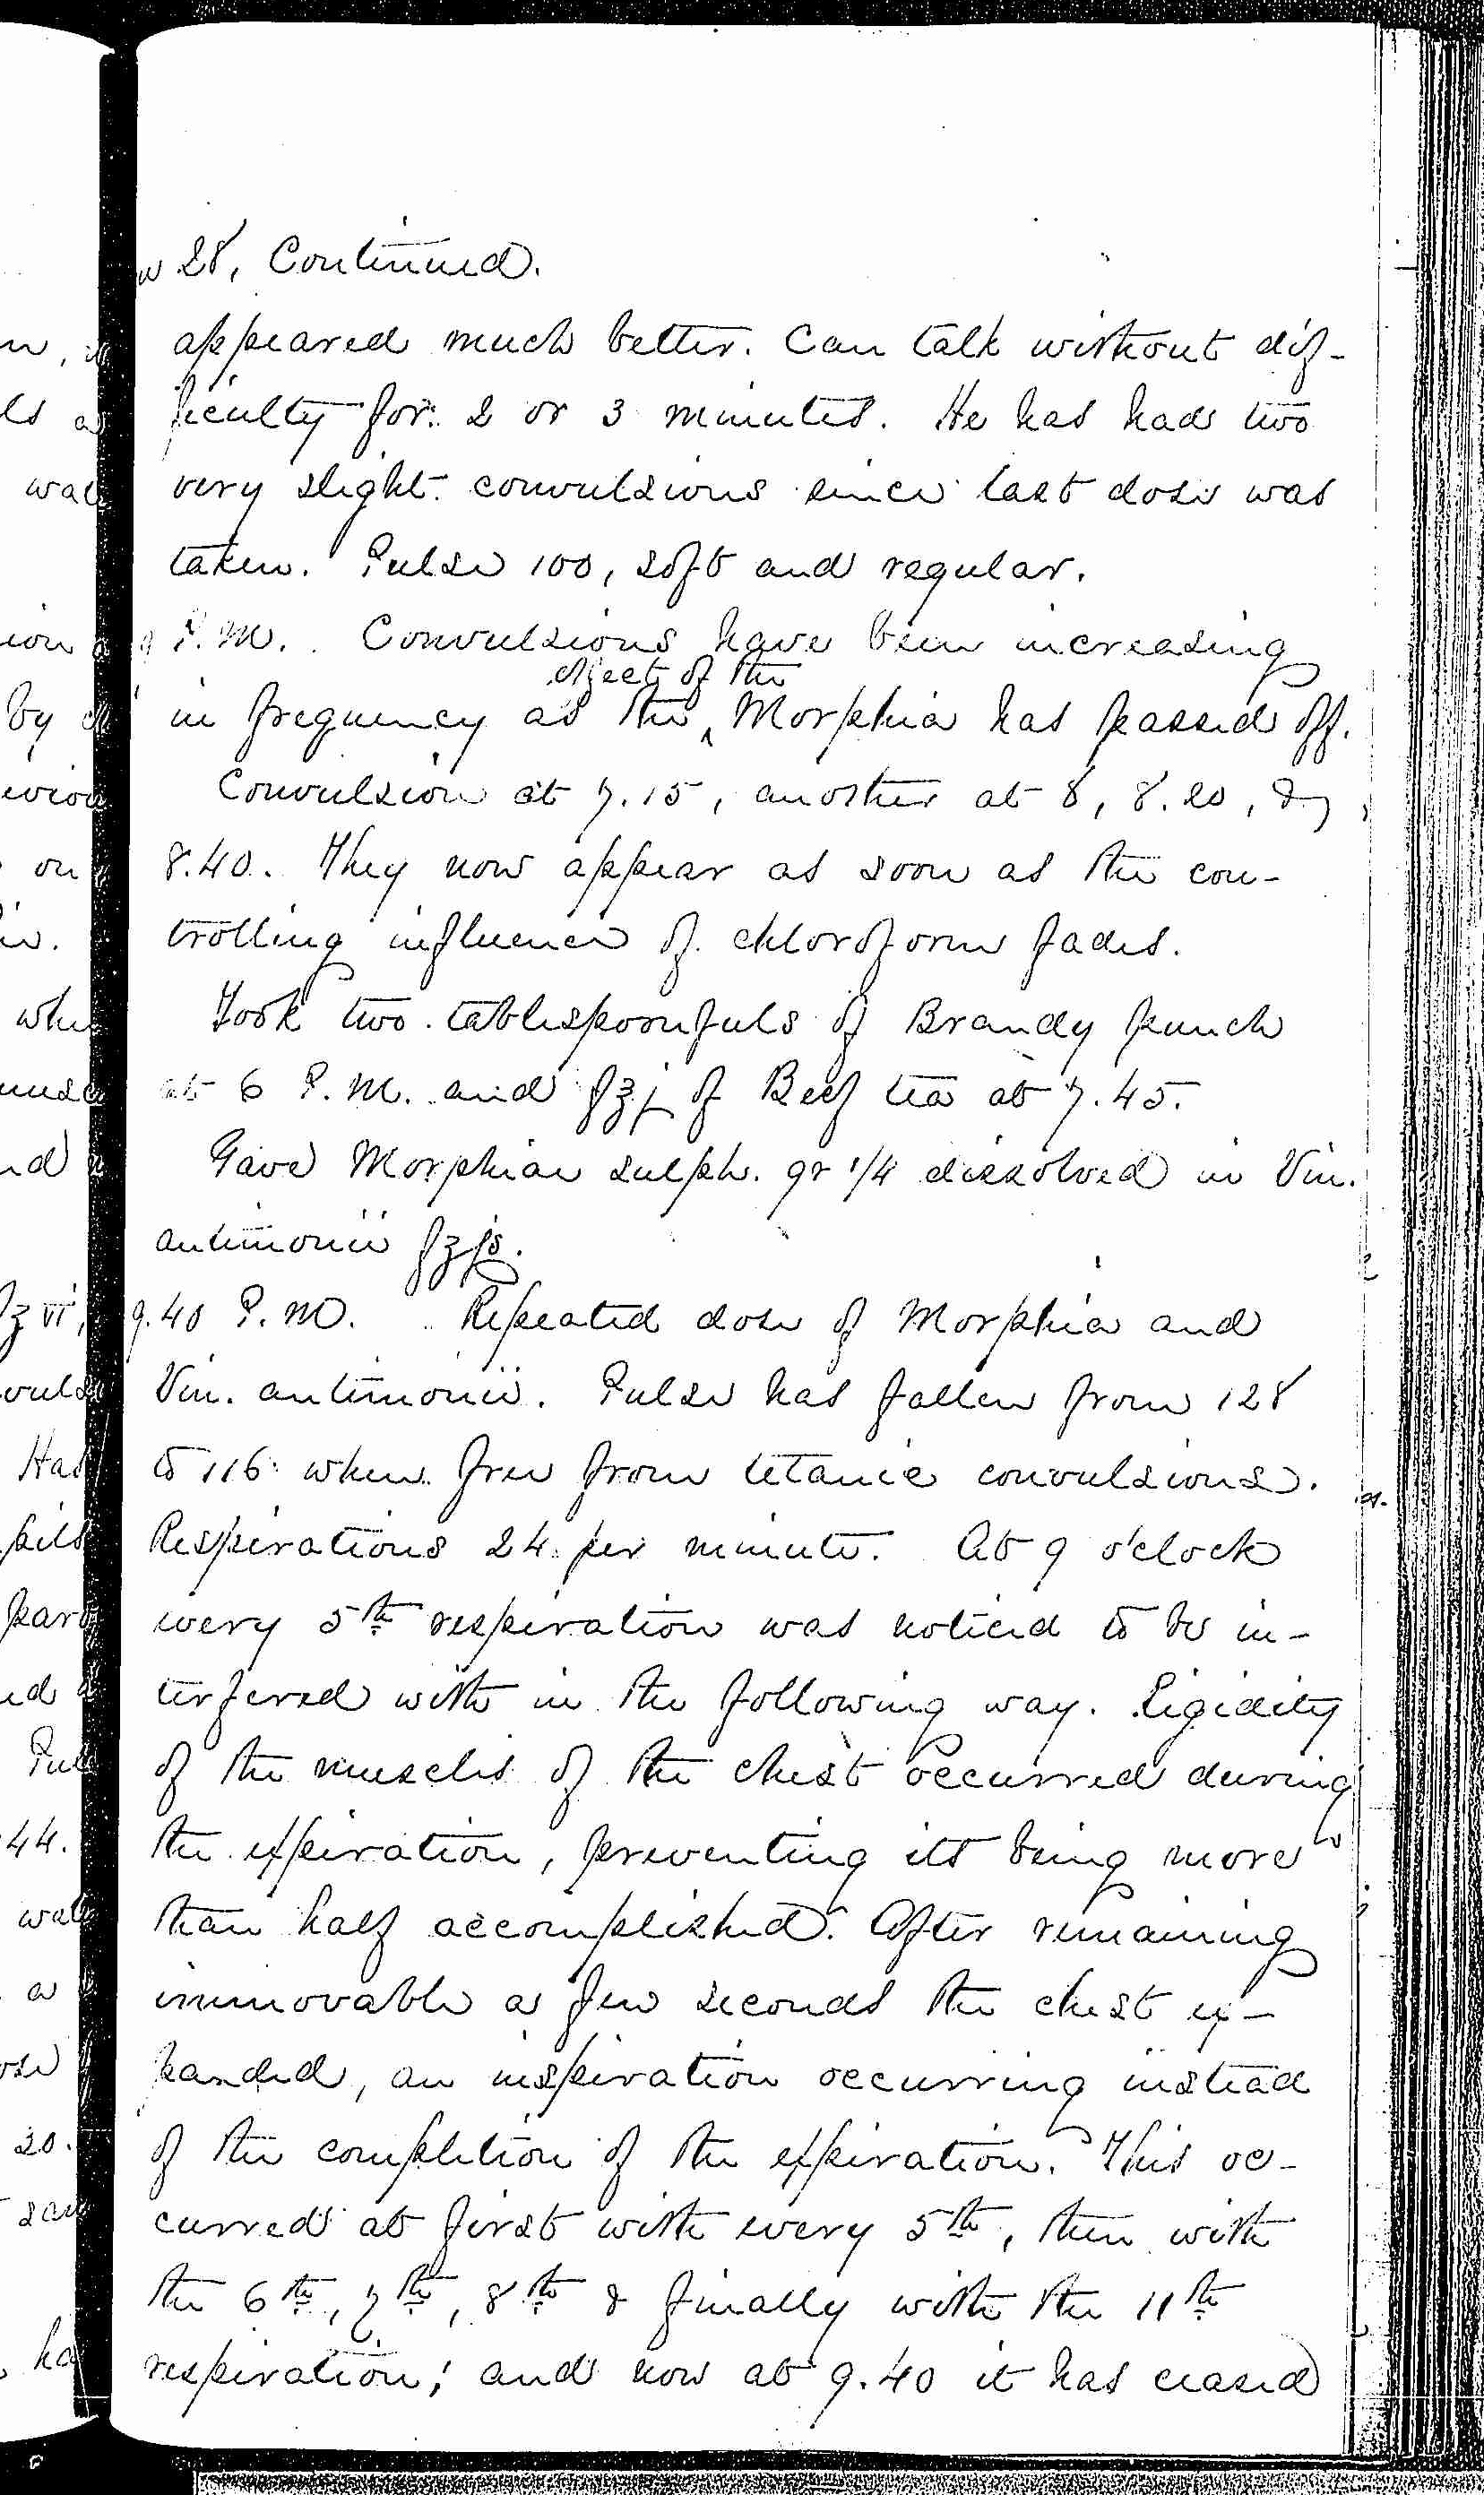 28, Continued.
appeared much better. Can talk without dif-
ficulty for 2 or 3 minutes. He has had two
very slight convulsions since last dose was
taken. Pulse 100, soft and regular.
9 P.M. Convulsions have been increasing
effect of the
in frequency as the ‸ Morphia has passed off.
Convulsion at 7.15, another at 8, 8.20, &
8.40. They now appear as soon as the con-
trolling influence of chloroform fades.
Took two tablespoonfuls of Brandy punch
at 6 P.M. and f℥j of Beef tea at 7.45.
Gave Morphiae sulph. gr 1/4 dissolved in Vin.
antimonii fʒjs.
9.40 P.M. Repeated dose of Morphia and
Vin. antimonii. Pulse has fallen from 128
to 116 when free from tetanic convulsions.
Respirations 24 per minute. At 9 o'clock
every 5th respiration was noticed to be in-
terfered with in the following way. Rigidity
of the muscles of the chest occurred during
the expiration, preventing its being more
than half accomplished. After remaining
immovable a few seconds the chest ex-
panded, an inspiration occurring instead
of the completion of the expiration. This oc-
curred at first with every 5th, then with
the 6th, 7th, 8th & finally with the 11th
respiration; and now at 9.40 it has ceased